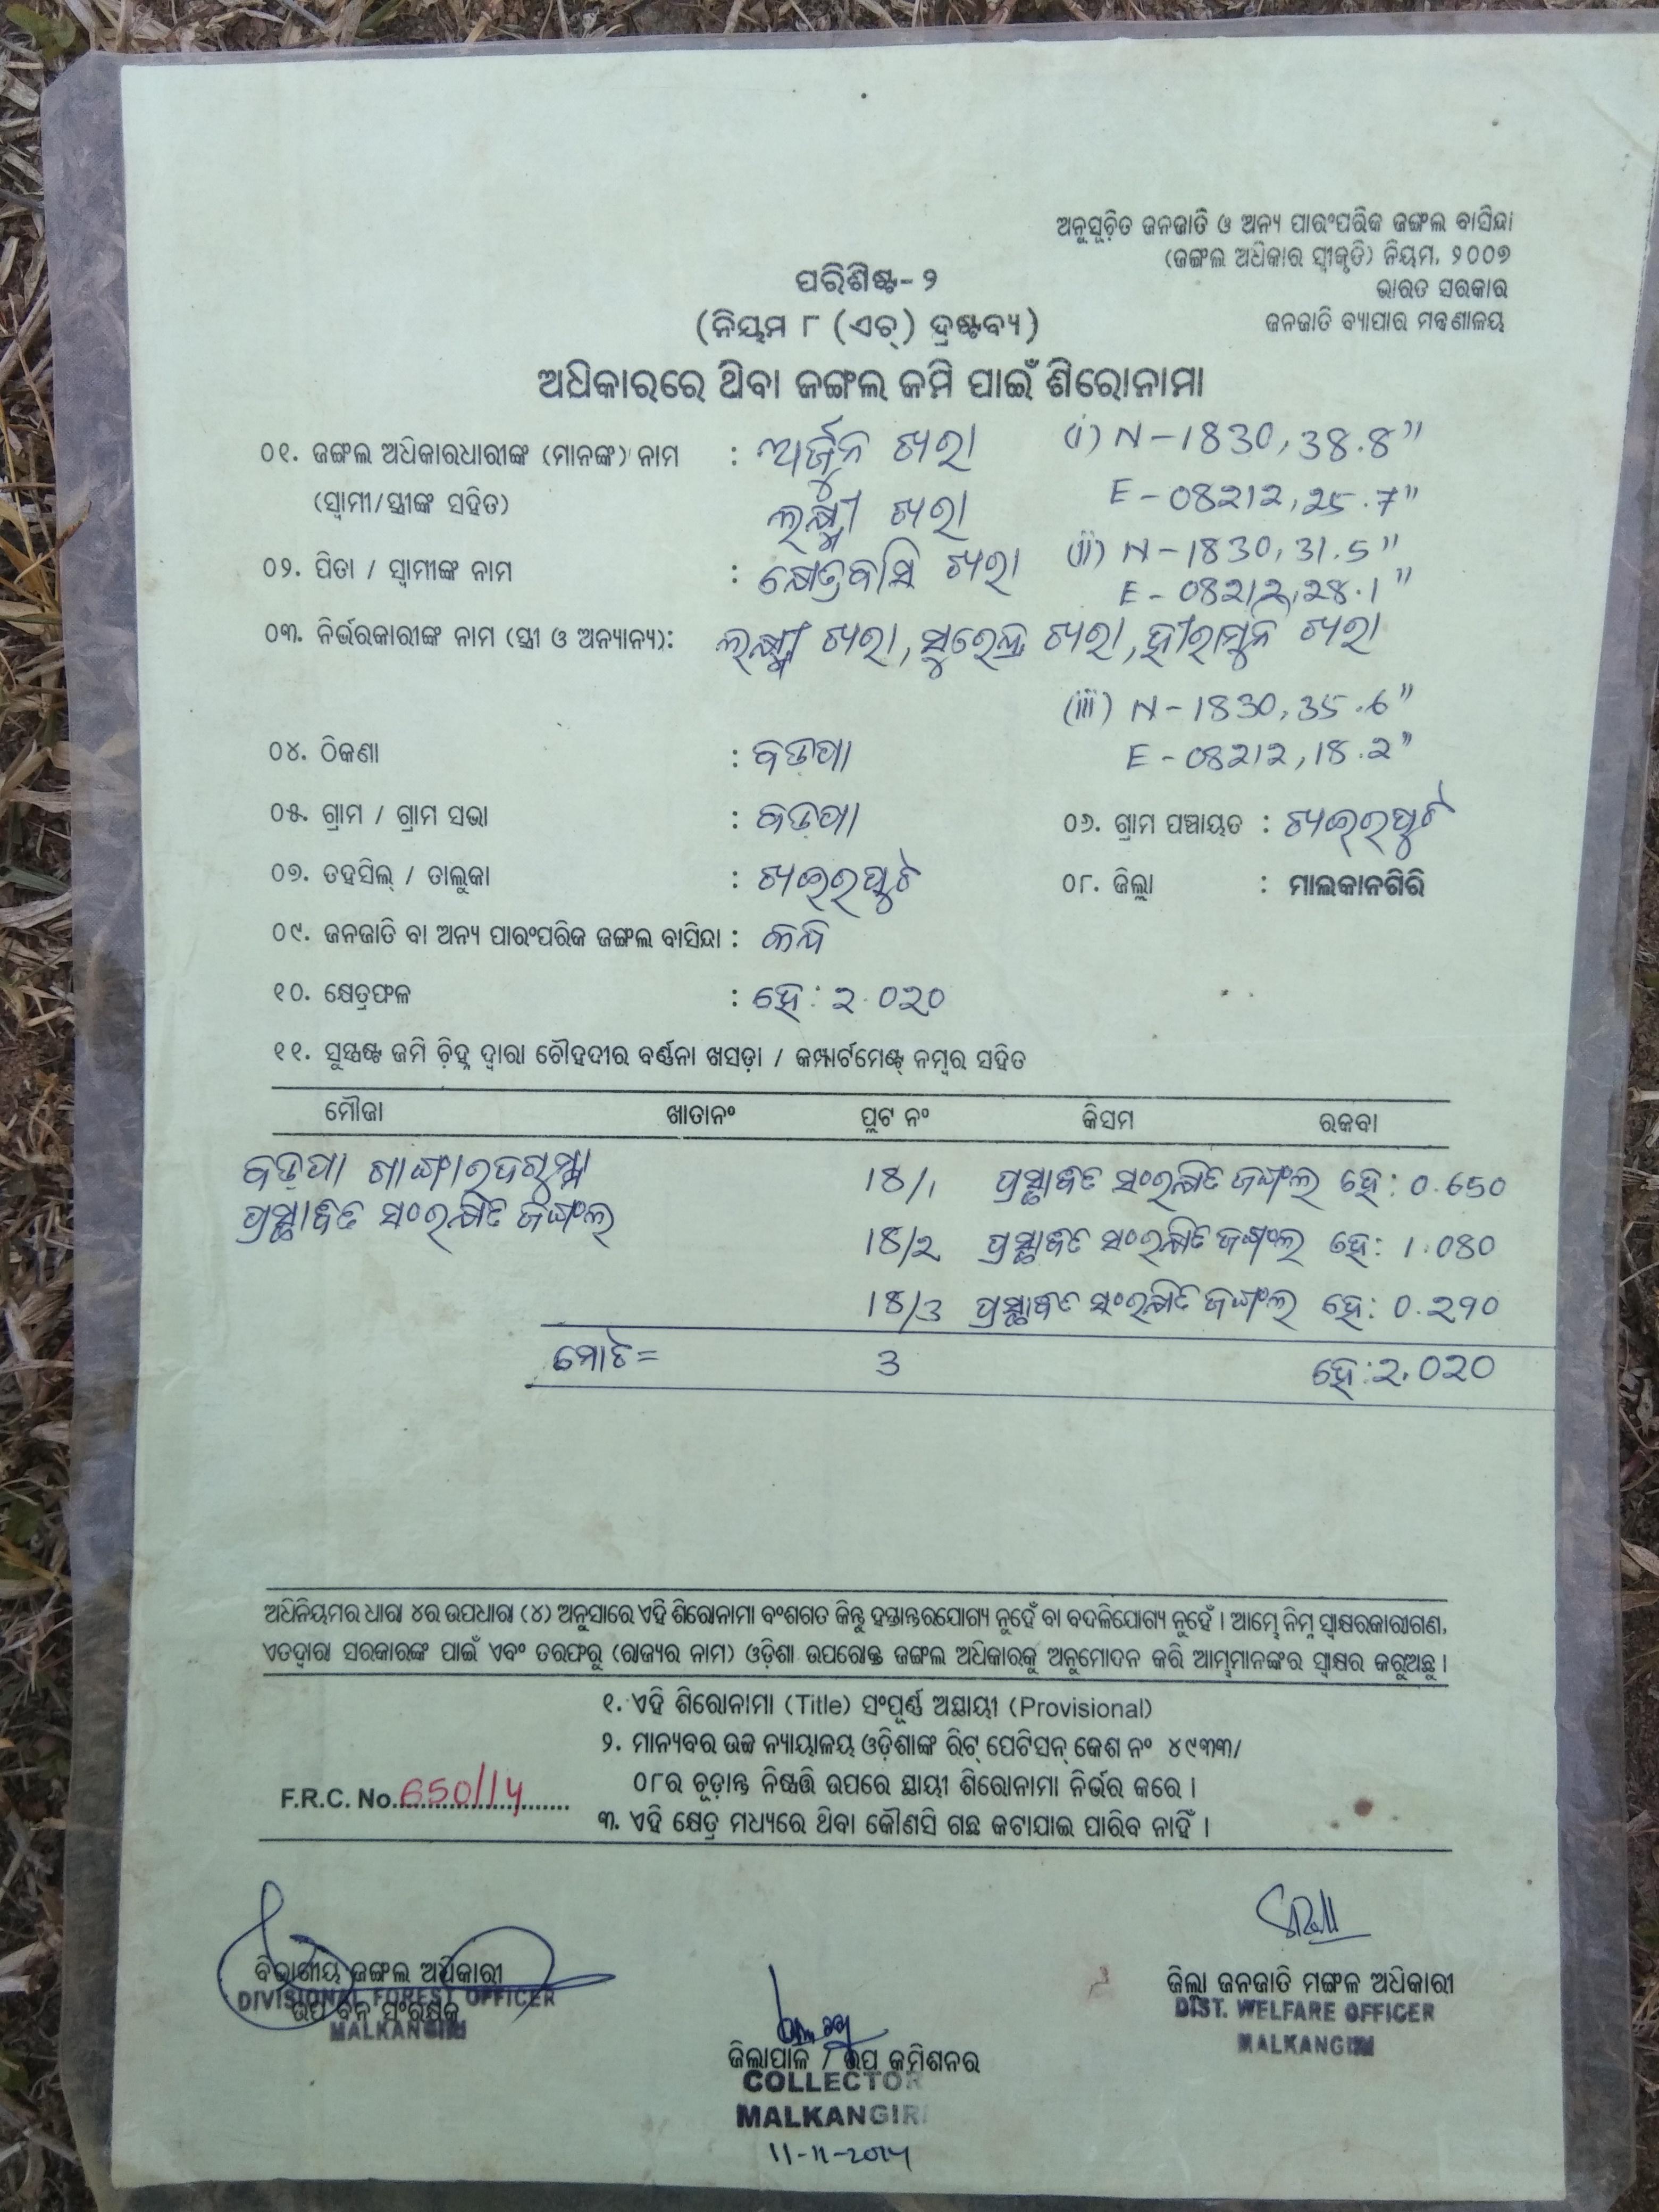 ଅନୁସୂଚିତ ଜନଜାତି ଓ ଅନ୍ୟ ପାରଂପରିକ ଜଙ୍ଗଲ ବାସିନ୍ଦା
(ଜଙ୍ଗଲ ଅଧିକାର ସ୍ୱୀକୃତି) ନିୟମ, ୨୦୦୭
ଭାରତ ସରକାର
ଜନଜାତି ବ୍ୟାପାର ମନ୍ତ୍ରଣାଳୟ
ପରିଶିଷ୍ଟ- ୨
(ନିୟମ ୮ (ଏଚ୍) ଦ୍ରଷ୍ଟବ୍ୟ)
ଅଧିକାରରେ ଥିବା ଜଙ୍ଗଲ ଜମି ପାଇଁ ଶିରୋନାମା
୦୧. ଜଙ୍ଗଲ ଅଧିକାରଧାରୀଙ୍କ (ମାନଙ୍କ) ନାମ : ଅର୍ଜୁନ ଖରା (i) N-1830, 38.8"
(ସ୍ୱାମୀ/ସ୍ତ୍ରୀଙ୍କ ସହିତ) ଲକ୍ଷ୍ମୀ ଖରା E-08212, 25.7"
୦୨. ପିତା / ସ୍ୱାମୀଙ୍କ ନାମ : କ୍ଷେତ୍ରବାସି ଖରା (ii) N-1830, 31.5"
E-08212, 28.1"
୦୩. ନିର୍ଭରକାରୀଙ୍କ ନାମ (ସ୍ତ୍ରୀ ଓ ଅନ୍ୟାନ୍ୟ): ଲକ୍ଷ୍ମୀ ଖରା, ସୁରେନ୍ଦ୍ର ଖରା, ହୀରାମୁନି ଖରା
(iii) N-1830, 35.6"
୦୪. ଠିକଣା : ବଡପା E-08212, 18.2"
୦୫. ଗ୍ରାମ / ଗ୍ରାମ ସଭା : ବଡ଼ପା ୦୬. ଗ୍ରାମ ପଞ୍ଚାୟତ : ଖଇରପୁଟ
୦୭. ତହସିଲ୍ / ତାଲୁକା : ଖଇରପୁଟ ୦୮. ଜିଲ୍ଲା : ମାଲକାନଗିରି
୦୯. ଜନଜାତି ବା ଅନ୍ୟ ପାରଂପରିକ ଜଙ୍ଗଲ ବାସିନ୍ଦା :
୧୦. କ୍ଷେତ୍ରଫଳ : ହେ: 2.020
୧୧. ସୁସ୍ପଷ୍ଟ ଜମି ଚିହ୍ନ ଦ୍ୱାରା ଚୌହଦୀର ବର୍ଣ୍ଣନା ଖସଡ଼ା / କମ୍ପାର୍ଟମେଣ୍ଟ୍ ନମ୍ବର ସହିତ
ମୌଜା ଖାତାନଂ ପ୍ଲଟ ନଂ କିସମ ରକବା
ବଡ଼ପା 18/1 ପ୍ରସ୍ତାବିତ ସଂରକ୍ଷିତ ଜଙ୍ଗଲ ହେ: 0.650
ପ୍ରସ୍ତାବିତ ସଂରକ୍ଷିତ ଜଙ୍ଗଲ
18/2 ପ୍ରସ୍ତାବିତ ସଂରକ୍ଷିତ ଜଙ୍ଗଲ ହେ: 1.080
18/3 ପ୍ରସ୍ତାବିତ ସଂରକ୍ଷିତ ଜଙ୍ଗଲ ହେ: 0.290
ମୋଟ= 3 ହେ: 2.020
ଅଧିନିୟମର ଧାରା ୪ର ଉପଧାରା (୪) ଅନୁସାରେ ଏହି ଶିରୋନାମା ବଂଶଗତ କିନ୍ତୁ ହସ୍ତାନ୍ତରଯୋଗ୍ୟ ନୁହେଁ ବା ବଦଳିଯୋଗ୍ୟ ନୁହେଁ । ଆମ୍ଭେ ନିମ୍ନ ସ୍ୱାକ୍ଷରକାରୀଗଣ,
ଏତଦ୍ୱାରା ସରକାରଙ୍କ ପାଇଁ ଏବଂ ତରଫରୁ (ରାଜ୍ୟର ନାମ) ଓଡ଼ିଶା ଉପରୋକ୍ତ ଜଙ୍ଗଲ ଅଧିକାରକୁ ଅନୁମୋଦନ କରି ଆମ୍ଭମାନଙ୍କର ସ୍ୱାକ୍ଷର କରୁଅଛୁ ।
୧. ଏହି ଶିରୋନାମା (Title) ସଂପୂର୍ଣ୍ଣ ଅସ୍ଥାୟୀ (Provisional)
୨. ମାନ୍ୟବର ଉଚ୍ଚ ନ୍ୟାୟାଳୟ ଓଡ଼ିଶାଙ୍କ ରିଟ୍ ପେଟିସନ୍ କେଶ ନଂ ୪୯୩୩/
୦୮ର ଚୂଡ଼ାନ୍ତ ନିଷ୍ପତ୍ତି ଉପରେ ସ୍ଥାୟୀ ଶିରୋନାମା ନିର୍ଭର କରେ ।
F.R.C. No. 650/14
୩. ଏହି କ୍ଷେତ୍ର ମଧ୍ୟରେ ଥିବା କୌଣସି ଗଛ କଟାଯାଇ ପାରିବ ନାହିଁ ।
ବିଭାଗୀୟ ଜଙ୍ଗଲ ଅଧିକାରୀ
DIVISIONAL FOREST OFFICER
ଉପ ବନ ସଂରକ୍ଷକ
MALKANGIRI
ଜିଲ୍ଲା ଜନଜାତି ମଙ୍ଗଳ ଅଧିକାରୀ
DIST. WELFARE OFFICER
MALKANGIRI
ଜିଲ୍ଲାପାଳ / ଉପ କମିଶନର
COLLECTOR
MALKANGIRI
11-11-2014